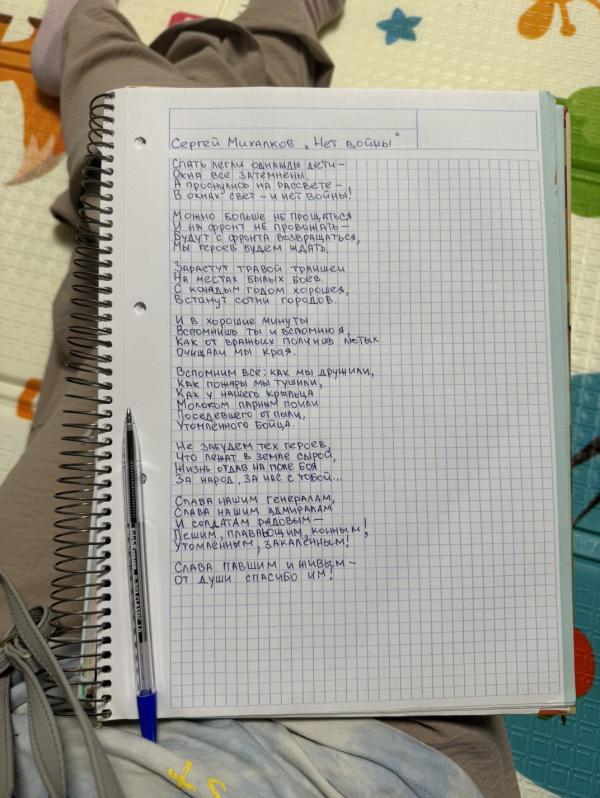 Сергей Михалков „Нет войны"
Спать легли однажды дети –
Окна все затемнены.
А проснулись на рассвете –
В окнах свет – и нет войны!
Можно больше не прощаться
И на фронт не провожать –
Будут с фронта возвращаться,
Мы героев будем ждать.
Зарастут травой траншеи
На местах былых боев.
С каждым годом хорошея,
Встанут сотни городов.
И в хорошие минуты
Вспомнишь ты и вспомню я,
Как от вражьих полчищ лютых
Очищали мы края.
Вспомним всё: как мы дружили,
Как пожары мы тушили,
Как у нашего крыльца
Молоком парным поили
Поседевшего от пыли,
Утомлённого бойца.
Не забудем тех героев,
Что лежат в земле сырой,
Жизнь отдав на поле боя
За народ, за нас с тобой...
Слава нашим генералам,
Слава нашим адмиралам
И солдатам рядовым –
Пешим, плавающим, конным,
Утомлённым, закалённым!
Слава павшим и живым –
От души спасибо им!